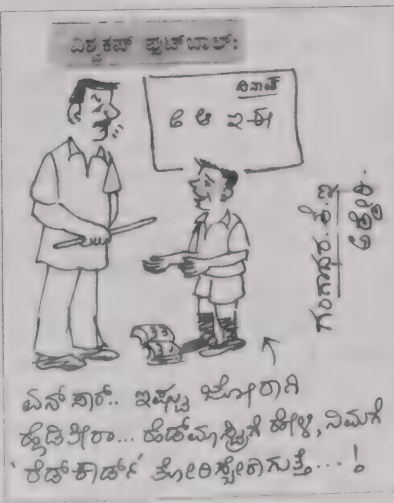 ವಿಶ್ವಕಪ್ ಫುಟ್‌ಬಾಲ್:
ದಿನಾಂಕ
ಅ ಆ ಇ ಈ
ಗಂಗಾಧರ. ಕೆ.
ಏನ್ ಸಾರ್.. ಇಷ್ಟು ಜೋರಾಗಿ
ಹೊಡಿತೀರಾ... ಹೆಡ್‌ಮಾಸ್ಟ್ರಿಗೆ ಹೇಳಿ, ನಿಮಗೆ
'ರೆಡ್‌ಕಾರ್ಡ್' ತೋರಿಸ್ಬೇಕಾಗುತ್ತೆ...!